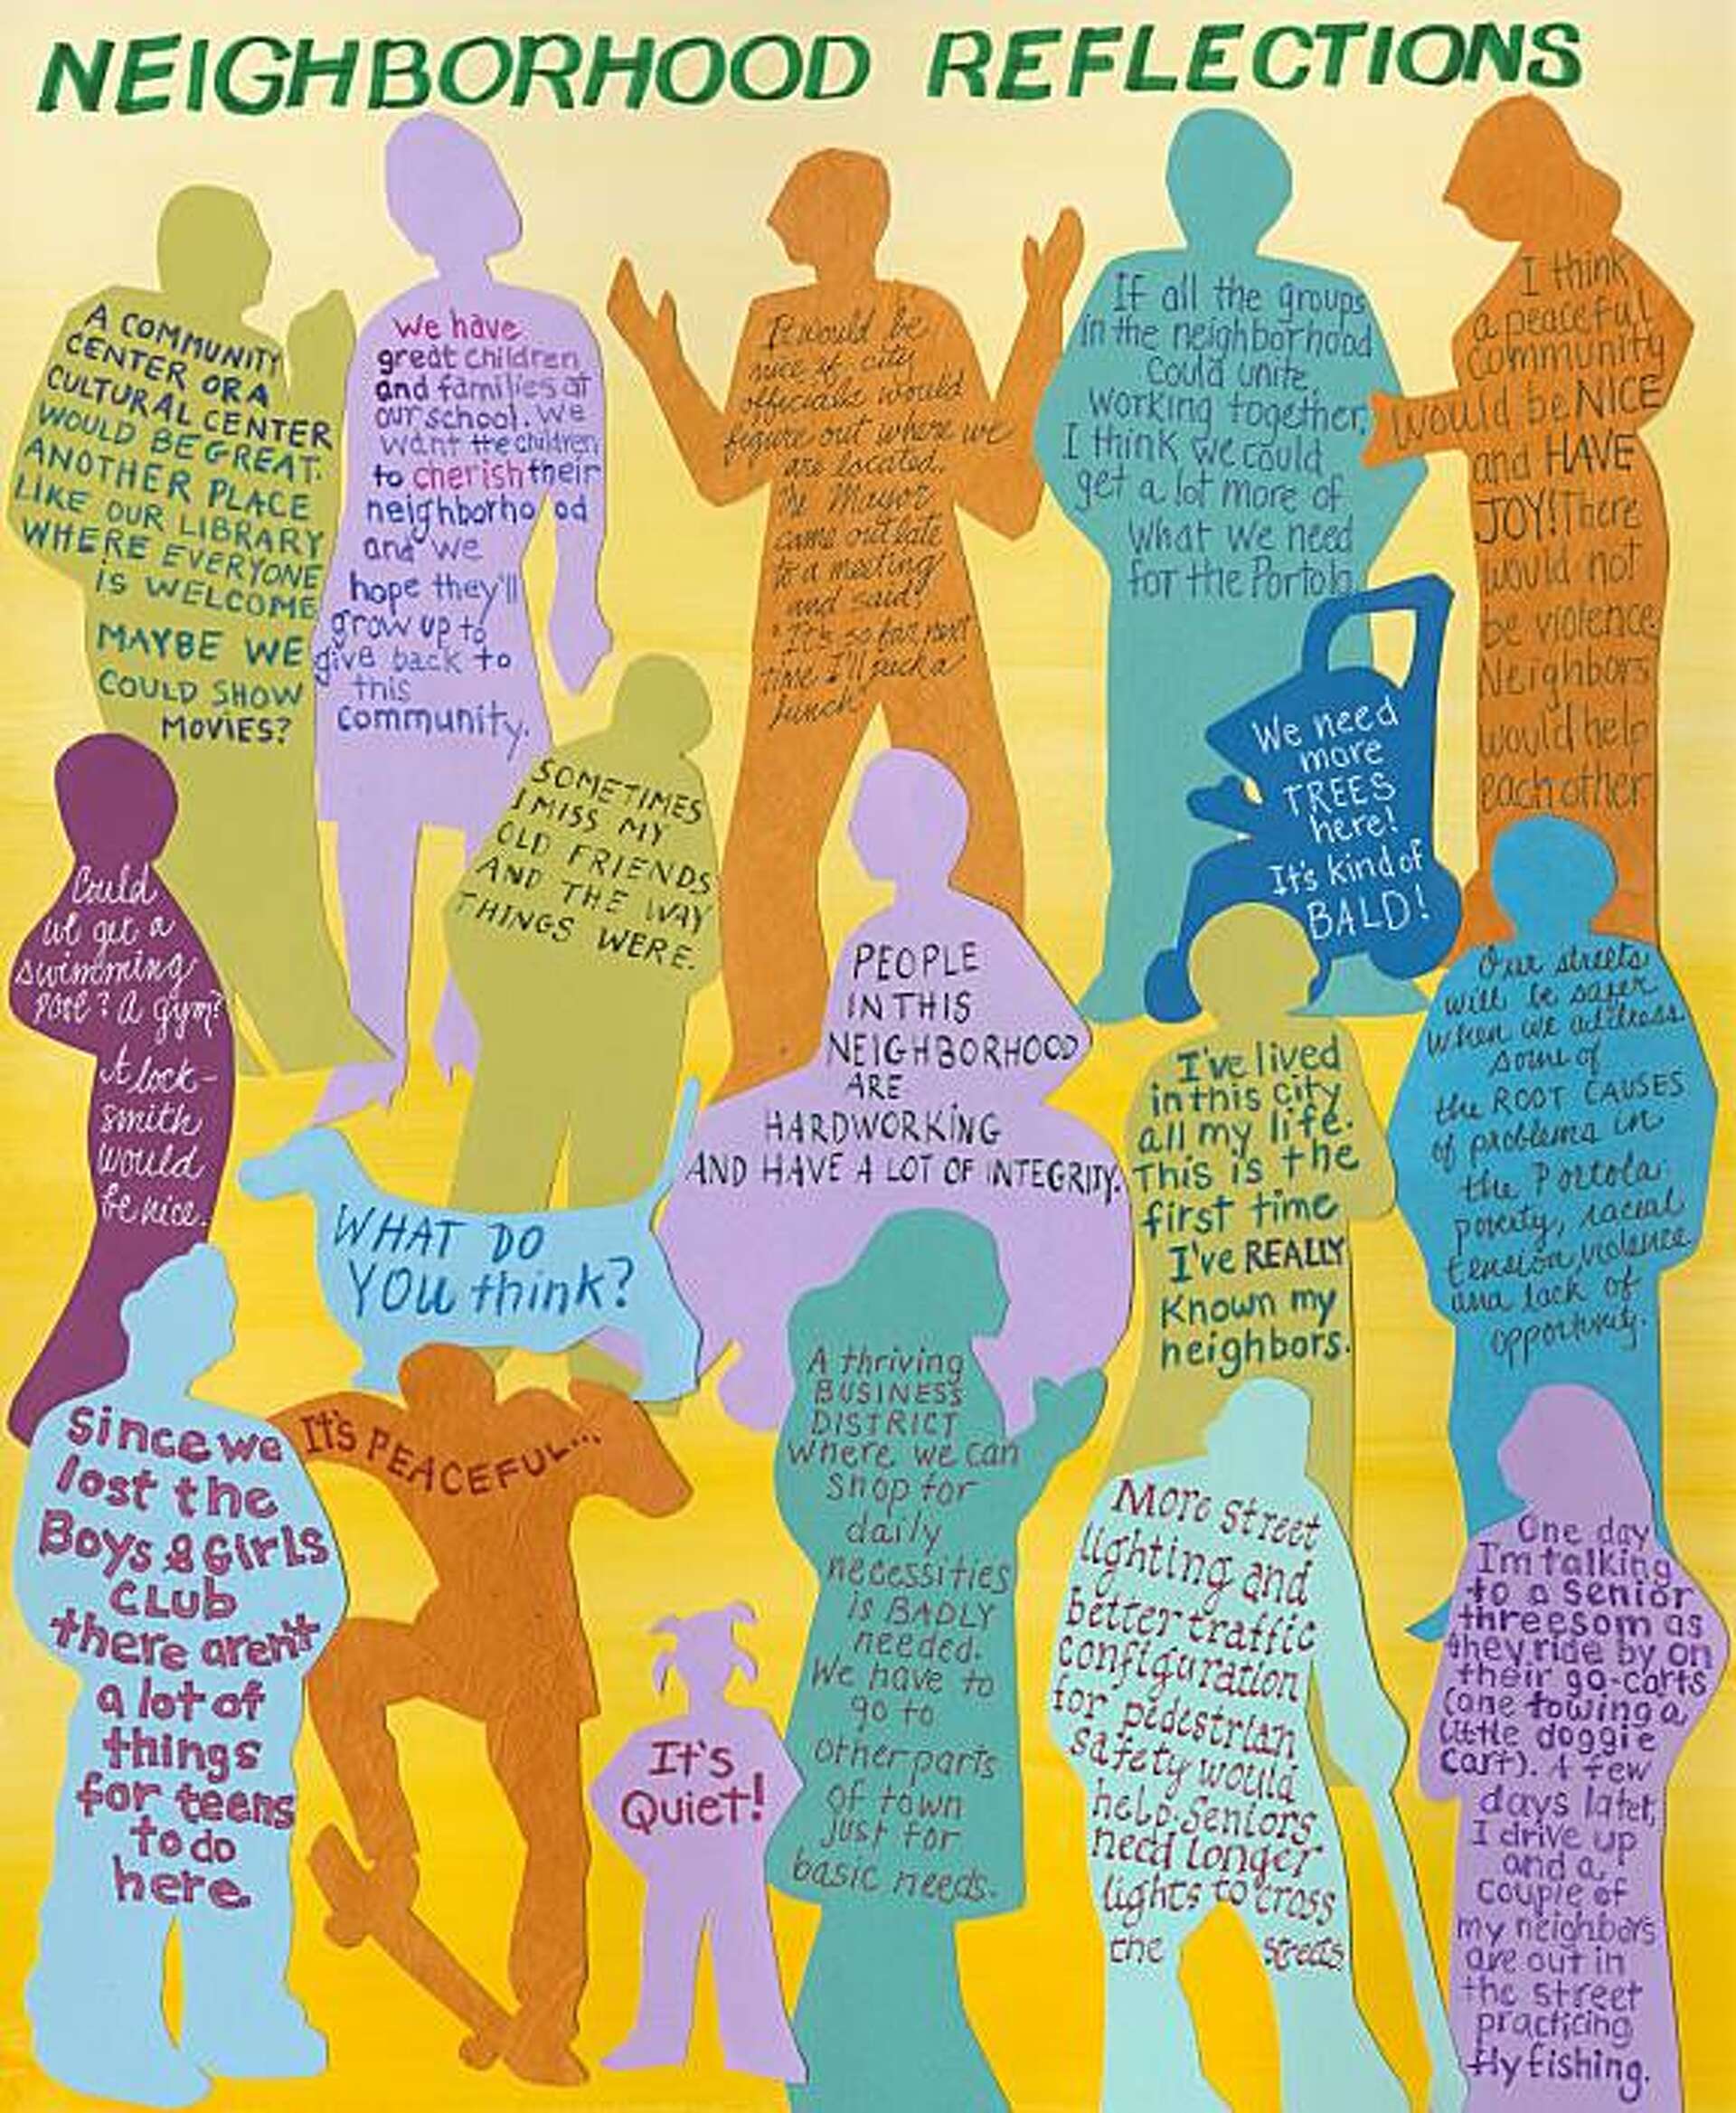 NEIGHBORHOOD REFLECTIONS
A COMMUNITY
CENTER OR A
CULTURAL CENTER
WOULD BE GREAT.
ANOTHER PLACE
LIKE OUR LIBRARY
WHERE EVERYONE
IS WELCOME
MAYBE WE
COULD SHOW
MOVIES?
We have
great children
and families at
our school. We
want the children
to cherish their
neighborhood
and we
hope they'll
grow up to
give back to
this
community.
It would be
nice if city
officials would
figure out where we
are located.
The Mayor
came out late
to a meeting
and said,
"It's so far next
time I'll pack a
lunch"
If all the groups
in the neighborhood
Could unite,
working together,
I think we could
get a lot more of
what we need
for the Portola
I think
a peaceful
community
would be NICE
and HAVE
JOY! There
would not
be violence
Neighbors
would help
each other.
We need
more
TREES
here!
It's kind of
BALD!
Could
we get a
swimming
pool? A gym?
A lock-
smith
would
be nice.
SOMETIMES
I MISS MY
OLD FRIENDS
AND THE WAY
THINGS WERE.
PEOPLE
IN THIS
NEIGHBORHOOD
ARE
HARDWORKING
AND HAVE A LOT OF INTEGRITY.
I've lived
in this city
all my life.
This is the
first time
I've REALLY
Known my
neighbors.
Our streets
will be safer
when we address
some of
the ROOT CAUSES
of problems in
the Portola:
poverty, racial
tension, violence
and lack of
opportunity.
WHAT DO
YOU think?
Since we
lost the
Boys & Girls
CLUB
there aren't
a lot of
things
for teens
to do
here.
IT'S PEACEFUL...
It's
Quiet!
A thriving
BUSINESS
DISTRICT
where we can
shop for
daily
necessities
is BADLY
needed.
We have to
go to
other parts
of town
just for
basic needs.
More street
lighting and
better traffic
configuration
for pedestrian
safety would
help. Seniors
need longer
lights to cross
the streets
One day
I'm talking
to a senior
threesom as
they ride by on
their go-carts
(one towing a
little doggie
cart). A few
days later,
I drive up
and a
couple of
my neighbors
are out in
the street
practicing
flyfishing.